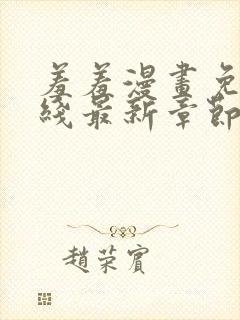 羞羞漫畫免
綫最新章節
趙荣賓